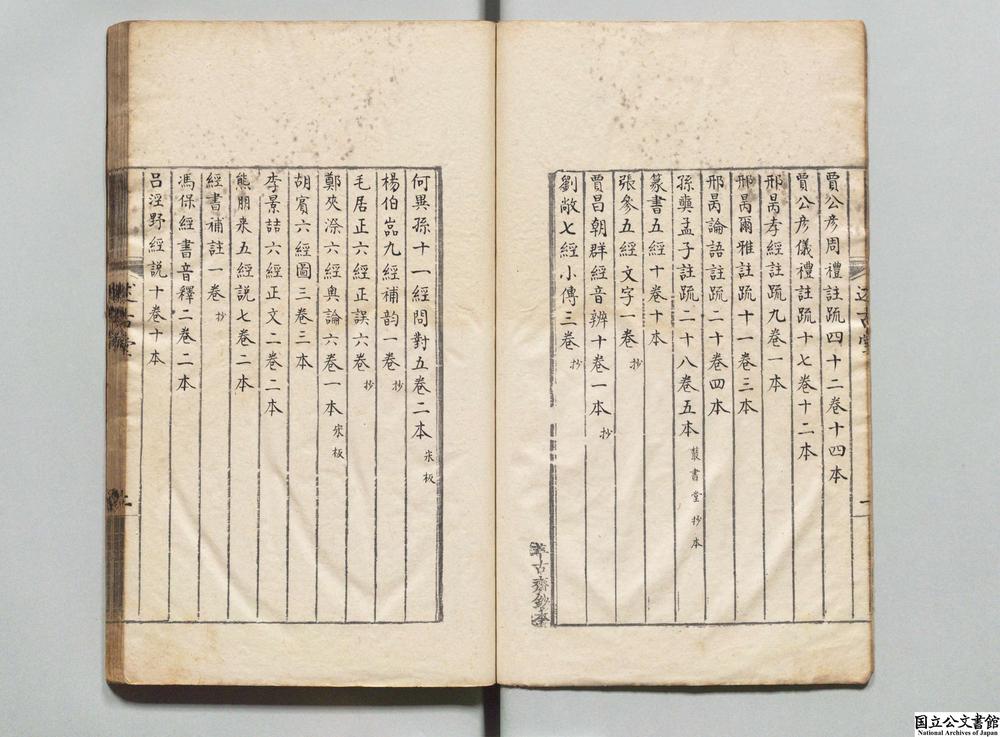 賈公彥周禮註疏四十二卷十四本
賈公彥儀禮註疏十七卷十二本
邢昺孝經註疏九卷一本
邢昺爾雅註疏十一卷三本
邢昺論語註疏二十卷四本
孫奭孟子註疏二十八卷五本 叢書堂抄本
篆書五經十卷十本
張參五經文字一卷 抄
賈昌朝群經音辨十卷一本 抄
劉敞七經小傳三卷 抄
古齋鈔本
何異孫十一經問對五卷二本 宋板
楊伯嵒九經補韵一卷 抄
毛居正六經正誤六卷 抄
鄭夾漈六經奥論六卷一本 宋板
胡賓六經圖三卷三本
李景喆六經正文二卷二本
熊朋来五經説七卷二本
經書補註一卷 抄
馮保經書音釋二卷二本
呂涇野經説十卷十本
国立公文書館
National Archives of Japan